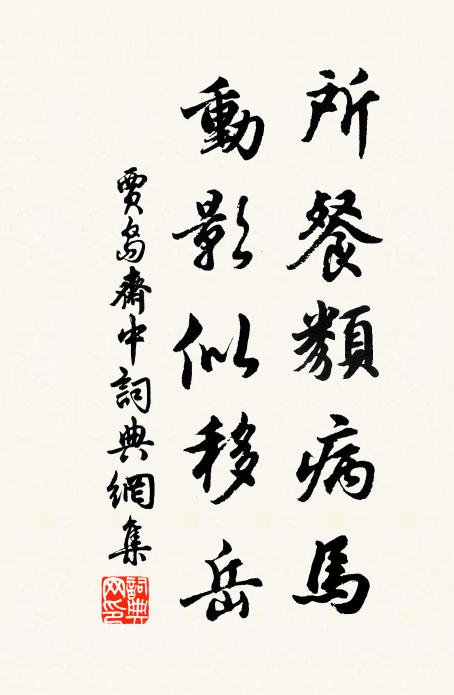 所餐類病馬
動影似移岳
賈島齋中詞典網集
詞典网印